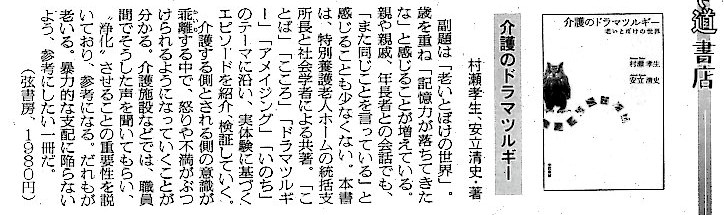 道書店
介護のドラマツルギー
老いとぼけの世界
村瀬孝生
安立清史
介護のドラマツルギー
村瀬孝生、安立清史・著
副題は「老いとぼけの世界」。
歳を重ね「記憶力が落ちてきた
な」と感じることが増えている。
親や親戚、年長者との会話でも、
「また同じことを言っている」と
感じることも少なくない。本書
は、特別養護老人ホームの統括支
所長と社会学者による共著。「こ
とば」「こころ」「ドラマツルギ
ー」「アメイジング」「いのち」
のテーマに沿い、実体験に基づく
エピソードを紹介、検証していく。
介護する側とされる側の意識が
乖離する中で、怒りや不満がぶつ
けられるようになっていくことが
分かる。介護施設などでは、職員
間でそうした声を聞いてもらい、
〝浄化〟させることの重要性を説
いており、参考になる。だれもが
老いる。暴力的な支配に陥らない
よう、参考にしたい一冊だ。
(弦書房、1980円)